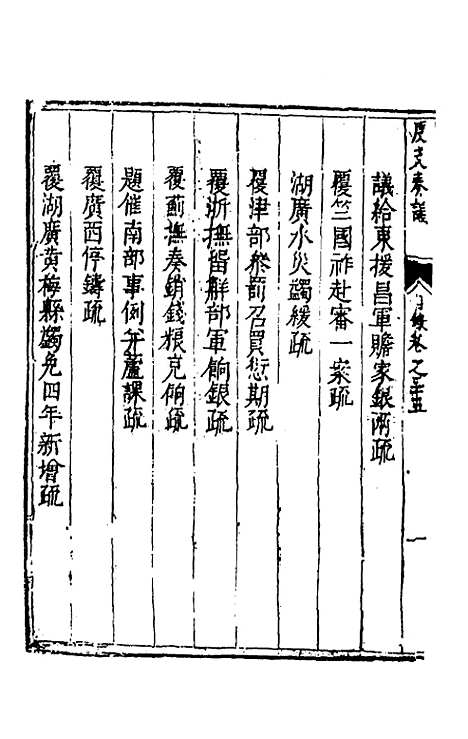 度支奏議
目錄卷之三五
一
議給東援昌軍贍家銀兩疏
覆竺國祚赴審一案疏
湖廣水災蠲緩疏
覆津部參薊召買愆期疏
覆浙撫留解部軍餉銀疏
覆薊撫奏銷錢糧克餉疏
題催南部事例并蘆課疏
覆廣西停鑄疏
覆湖廣黃梅縣蠲免四年新增疏